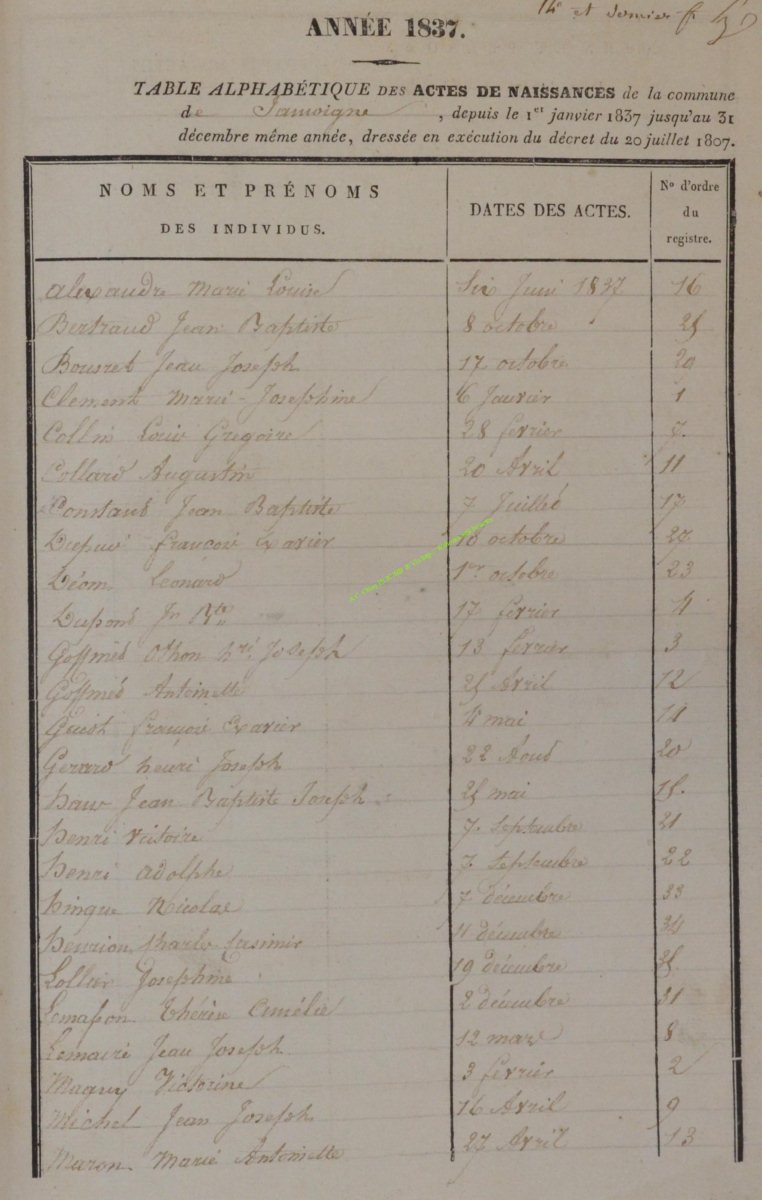 14e et dernier f
ANNÉE 1837.
TABLE ALPHABÉTIQUE DES ACTES DE NAISSANCES de la commune
de Jamoigne, depuis le 1er janvier 1837 jusqu'au 31
décembre même année, dressée en exécution du décret du 20 juillet 1807.
NOMS ET PRÉNOMS DATES DES ACTES. No d'ordre
DES INDIVIDUS. du
registre.
Alexandre Marie Louise Six Juin 1837 16
Bertrand Jean Baptiste 8 octobre 25
Bousret Jean Joseph 17 octobre 29
Clement Marie-Josephine 6 Janvier 1
Collin Louis Gregoire 28 fevrier 7
Collard Augustin 20 Avril 11
Constant Jean Baptiste 7 Juillet 17
françois Xavier 10 octobre 27
Déom Leonard 1er octobre 23
Dupond Jn Bte 17 fevrier 4
Goffinet Othon hri Joseph 13 fevrier 3
Goffinet Antoinette 25 Avril 12
Guiot françois Xavier 4 mai 14
Gerard henri Joseph 22 Aout 20
haus Jean Baptiste Joseph 25 mai 15
henri Victoire 7 septembre 21
henri adolphe 7 septembre 22
hinque Nicolas 7 décembre 33
henrion charles casimir 11 décembre 34
Lollier Josephine 19 décembre 35
Lemasson Thérèse Amélie 2 décembre 31
Lemaire Jean Joseph 12 mars 8
Maguy Victorine 3 fevrier 2
Michel Jean Joseph 16 Avril 9
Maron Marie Antoinette 27 Avril 13